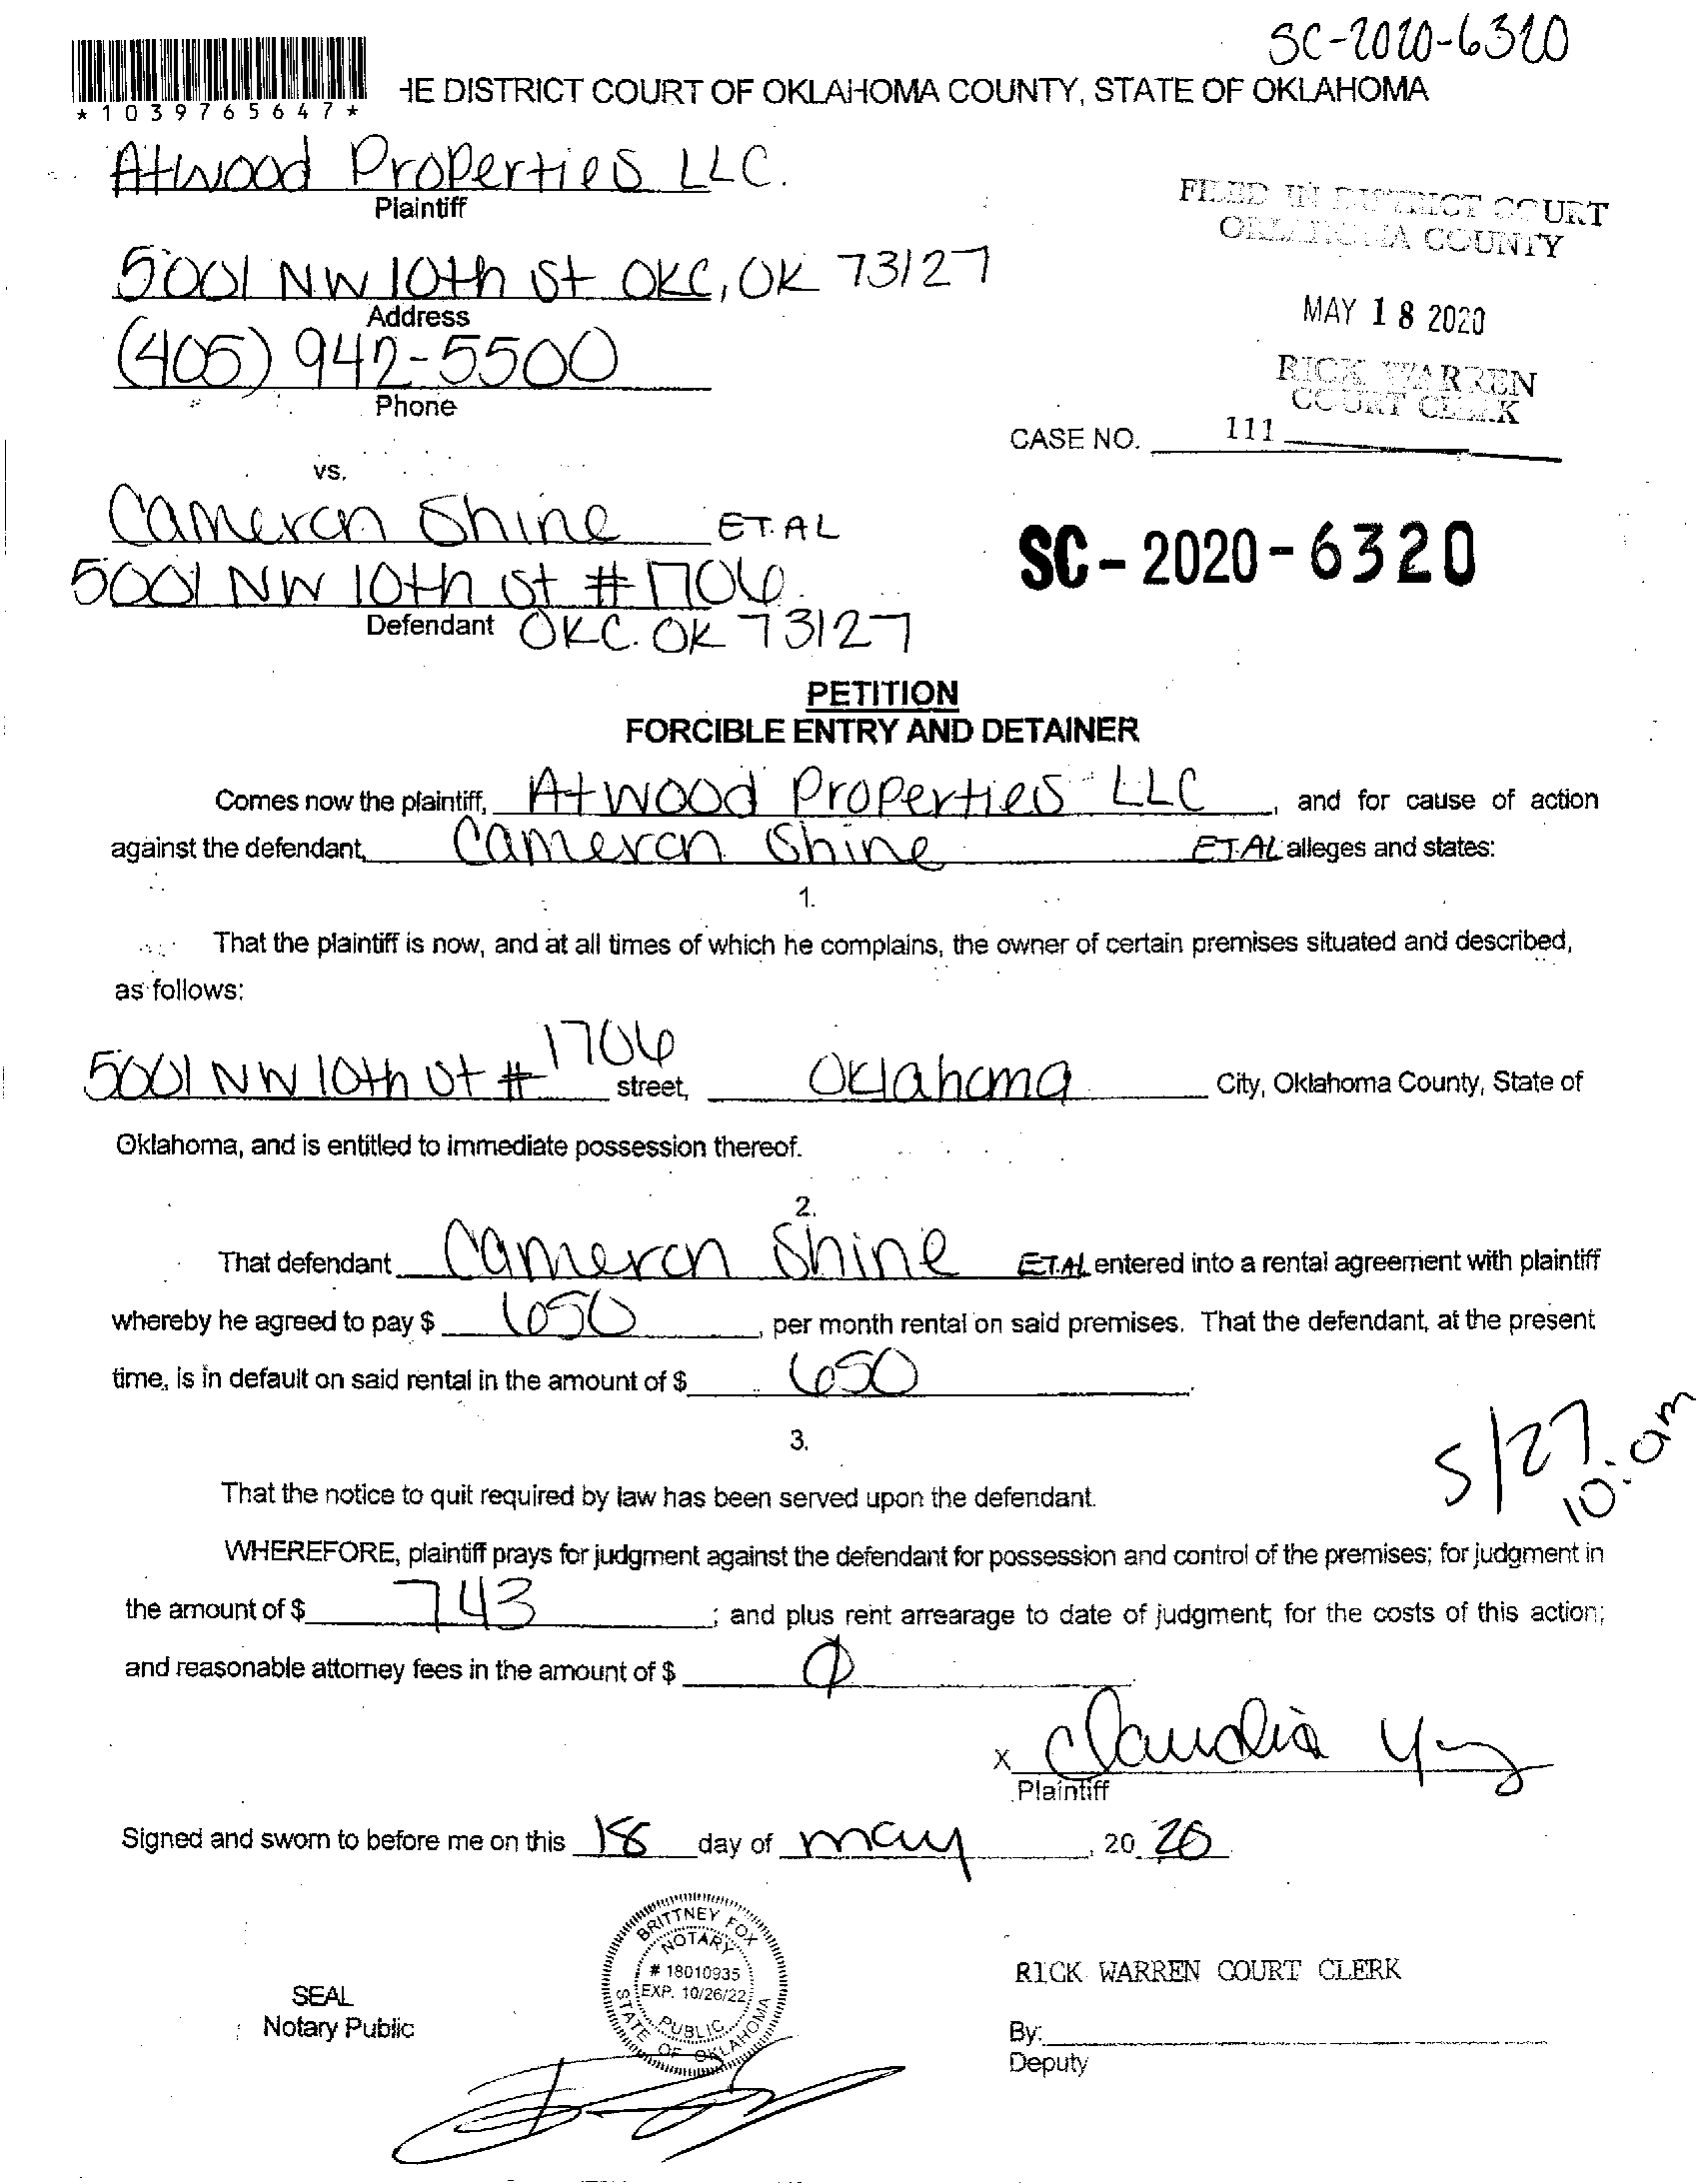 SC-2020-6320
*1039765647*
HE DISTRICT COURT OF OKLAHOMA COUNTY, STATE OF OKLAHOMA
Atwood Properties LLC.
Plaintiff
FILED IN DISTRICT COURT
OKLAHOMA COUNTY
5001 NW 10th St OKC, OK 73127
Address
MAY 18 2020
(405) 942-5500
Phone
RICK WARREN
COURT CLERK
CASE NO. 111
vs.
Cameron Shine ET.AL
SC-2020-6320
5001 NW 10th St #1706
Defendant OKC. OK 73127
PETITION
FORCIBLE ENTRY AND DETAINER
Comes now the plaintiff, Atwood Properties LLC, and for cause of action
against the defendant, Cameron Shine ET.AL alleges and states:
1.
That the plaintiff is now, and at all times of which he complains, the owner of certain premises situated and described,
as follows:
5001 NW 10th St # 1706 street, Oklahoma City, Oklahoma County, State of
Oklahoma, and is entitled to immediate possession thereof.
2.
That defendant Cameron Shine ET.AL entered into a rental agreement with plaintiff
whereby he agreed to pay $ 650, per month rental on said premises. That the defendant, at the present
time, is in default on said rental in the amount of $ 650.
3.
5/27
10:am
That the notice to quit required by law has been served upon the defendant.
WHEREFORE, plaintiff prays for judgment against the defendant for possession and control of the premises; for judgment in
the amount of $ 743; and plus rent arrearage to date of judgment; for the costs of this action;
and reasonable attorney fees in the amount of $ 0.
X Claudia
Plaintiff
Signed and sworn to before me on this 18 day of may, 20 20.
BRITTNEY FOX
NOTARY
# 18010935
EXP. 10/26/22
PUBLIC
STATE OF OKLAHOMA
SEAL
Notary Public
RICK WARREN COURT CLERK
By:
Deputy